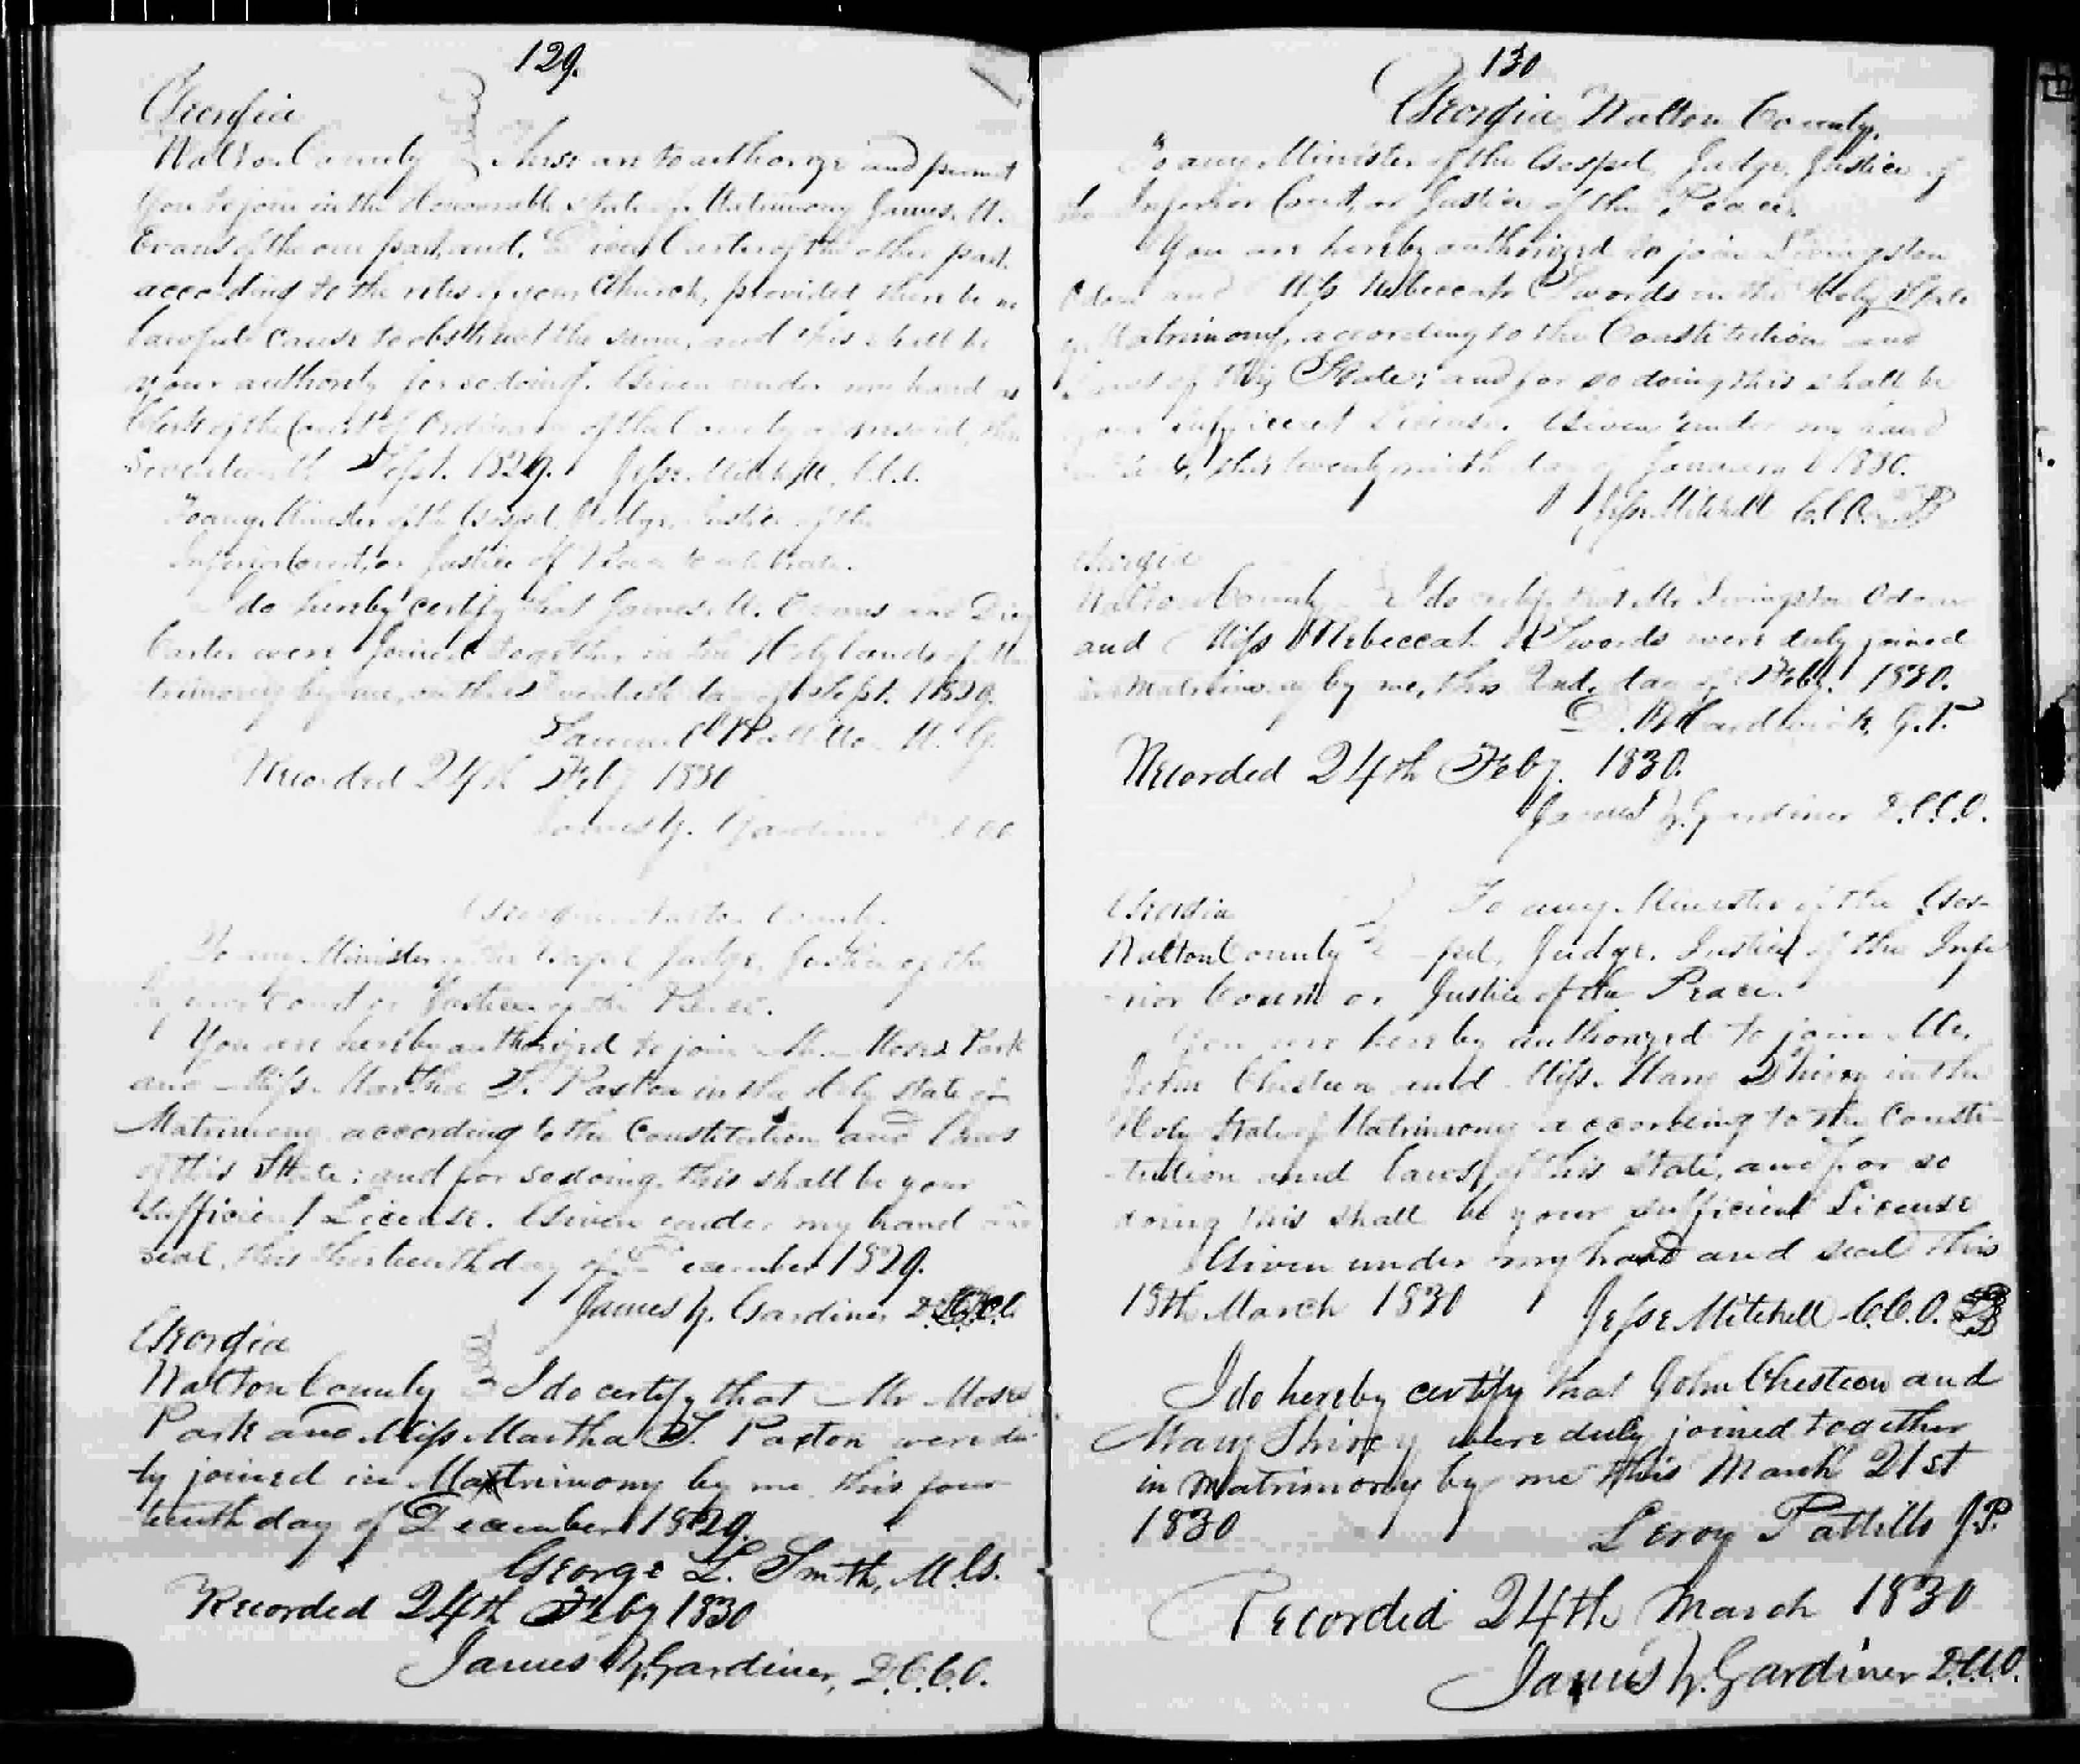 129.
Georgia
Walton County These are to authorize and permit
you to join in the Honourable State of Matrimony James M.
Evans of the one part, and Carter of the other part
according to the rites of your Church, provided there be no
lawful cause to obstruct the same, and this shall be
your authority for so doing. Given under my hand as
Clerk of the Court of Ordinary of the County aforesaid, this
Seventeenth Sept. 1829. Jesse Mitchell, C.C.O.
To any Minister of the Gospel, Judge, Justice of the
Inferior Court, or Justice of Peace to celebrate.
I do hereby certify that James M. Evans and
Carter were Joined together in the Holy bands of Ma
trimony by me, on this day of Sept. 1829.
Samuel M. G.
Recorded 24th Feby 1830
James Y. Gardiner D.C.C.O.
Georgia Walton County.
To any Minister of the Gospel Judge, Justice of the
Inferior Court or Justice of the Peace.
You are hereby authorized to join Mr. Moses Park
and Miss Martha S. Paxton in the Holy state of
Matrimony according to the Constitution and Laws
of this State; and for so doing this shall be your
sufficient License. Given under my hand and
seal, this thirteenth day of December 1829.
James Y. Gardiner D.C.C.O.
Georgia
Walton County I do certify that Mr Moses
Park and Miss Martha S. Paxton were du
ly joined in Matrimony by me this four
teenth day of December 1829.
George L. Smith, M.G.
Recorded 24th Feby 1830
James Y. Gardiner, D.C.C.O.
130
Georgia Walton County.
To any Minister of the Gospel, Judge, Justice of
the Inferior Court, or Justice of the Peace.
You are hereby authorized to join Livingston
Odom and Miss Rebeccah Swords in the Holy State
of Matrimony, according to the Constitution and
Laws of this State; and for so doing this shall be
your sufficient License. Given under my hand
this twenty ninth day of January 1830.
Jesse Mitchell C.C.O.
Georgia
Walton County I do certify that Mr Livingston Odom
and Miss Rebeccah Swords were duly joined
in Matrimony by me, this 2nd. day of Feby. 1830.
Hardwick, J.P.
Recorded 24th Feby. 1830.
James Y. Gardiner D.C.C.O.
Georgia To any Minister of the Gos-
Walton County -pel, Judge, Justice of the Infe
-rior Court or Justice of the Peace.
You are hereby authorized to join Mr.
John Chesteen and Miss. Mary Shirey in the
Holy State of Matrimony according to the Consti-
-tution and laws of this State, and for so
doing this shall be your sufficient License
Given under my hand and seal this
18th March 1830 Jesse Mitchell C.C.O.
I do hereby certify that John Chesteen and
Mary Shirey were duly joined together
in Matrimony by me this March 21st
1830 Leroy Pattillo J.P.
Recorded 24th March 1830
James Y. Gardiner D.C.C.O.